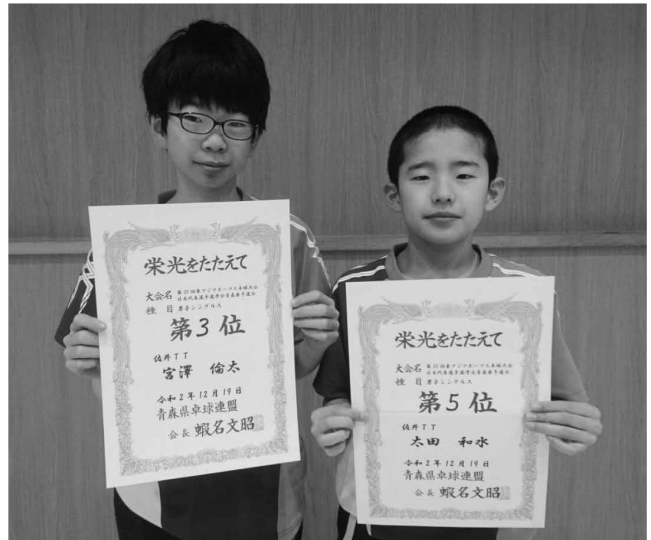 栄光をたたえて
大会名 第25回東アジアホープス卓球大会
日本代表選手選考会青森県予選会
種 目 男子シングルス
第3位
佐井TT
宮澤 倫太
令和2年12月19日
青森県卓球連盟
会長 蝦名文昭
栄光をたたえて
大会名 第25回東アジアホープス卓球大会
日本代表選手選考会青森県予選会
種 目 男子シングルス
第5位
佐井TT
太田 和水
令和2年12月19日
青森県卓球連盟
会長 蝦名文昭